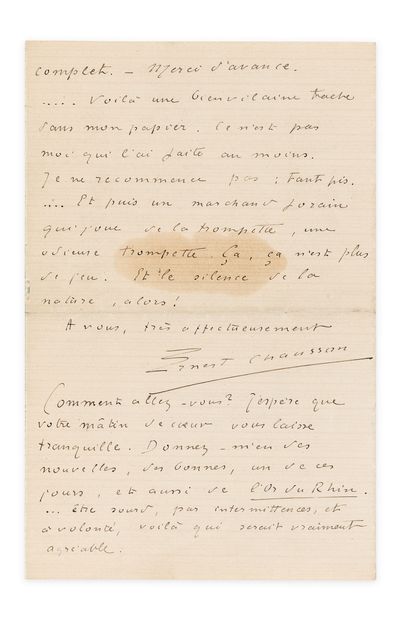 complet. _ Merci d'avance.
..... Voilà une bien vilaine tache
dans mon papier. Ce n'est pas
moi qui l'ai faite au moins.
Je ne recommence pas : tant pis.
.... Et puis un marchand forain
qui joue de la trompette, une
odieuse trompette. Ça, ça n'est plus
de jeu. Et le silence de la
nature, alors!
A vous, très affectueusement
Ernest Chausson
Comment allez-vous? J'espère que
votre mâtin de cœur vous laisse
tranquille. Donnez-m'en des
nouvelles, des bonnes, un de ces
jours, et aussi de l'Or du Rhin.
... être sourd, par intermittences, et
à volonté, voilà qui serait vraiment
agréable.